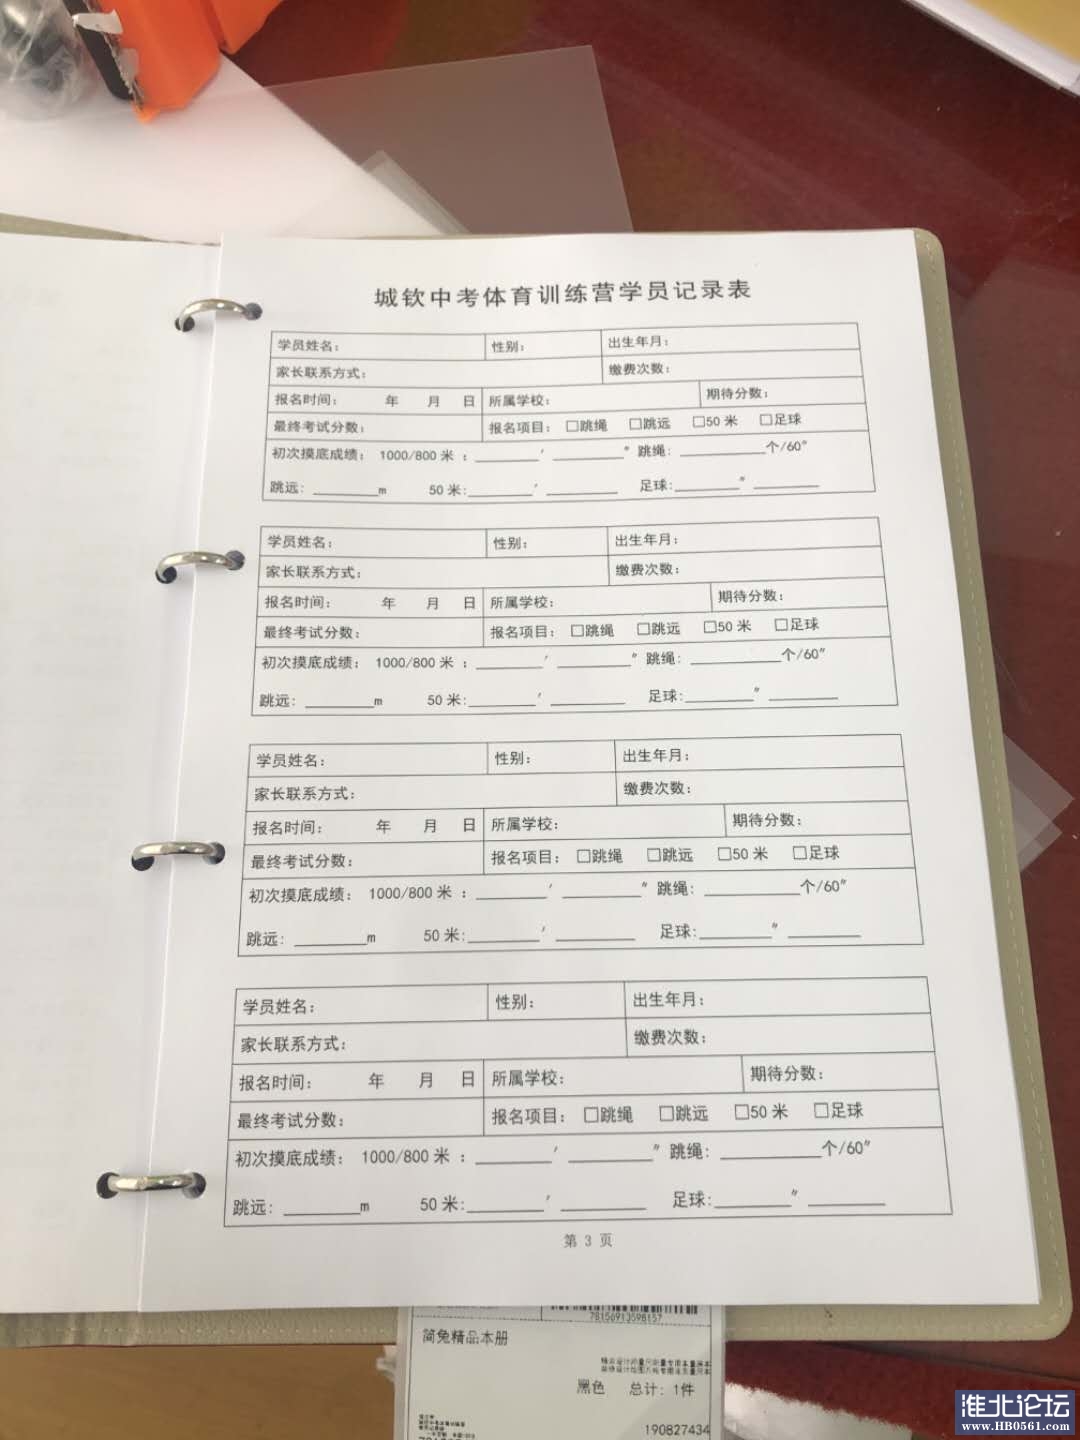 城钦中考体育训练营学员记录表
学员姓名： 性别： 出生年月：
家长联系方式： 缴费次数：
报名时间： 年 月 日 所属学校： 期待分数：
最终考试分数： 报名项目： □跳绳 □跳远 □50米 □足球
初次摸底成绩： 1000/800米 ：________′ ________″ 跳绳： __________个/60″
跳远： ________m 50米:________′ ________ 足球:________″ ________
学员姓名： 性别： 出生年月：
家长联系方式： 缴费次数：
报名时间： 年 月 日 所属学校： 期待分数：
最终考试分数： 报名项目： □跳绳 □跳远 □50米 □足球
初次摸底成绩： 1000/800米 ：________′ ________″ 跳绳： __________个/60″
跳远： ________m 50米:________′ ________ 足球:________″ ________
学员姓名： 性别： 出生年月：
家长联系方式： 缴费次数：
报名时间： 年 月 日 所属学校： 期待分数：
最终考试分数： 报名项目： □跳绳 □跳远 □50米 □足球
初次摸底成绩： 1000/800米 ：________′ ________″ 跳绳： __________个/60″
跳远： ________m 50米:________′ ________ 足球:________″ ________
学员姓名： 性别： 出生年月：
家长联系方式： 缴费次数：
报名时间： 年 月 日 所属学校： 期待分数：
最终考试分数： 报名项目： □跳绳 □跳远 □50米 □足球
初次摸底成绩： 1000/800米 ：________′ ________″ 跳绳： __________个/60″
跳远： ________m 50米:________′ ________ 足球:________″ ________
第 3 页
78156913598157
简兔精品本册
黑色 总计: 1件
190827434
淮北论坛
www.HB0561.com